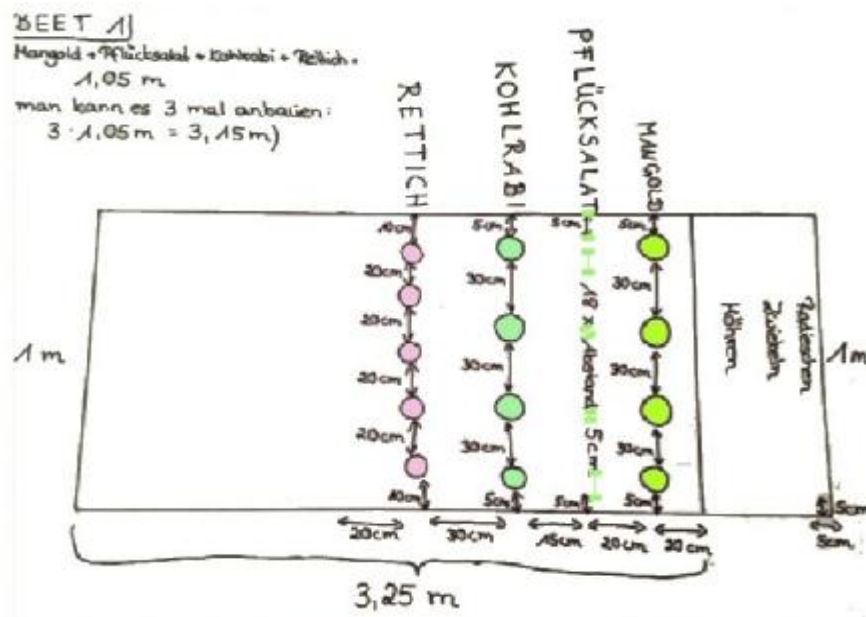 BEET 1
Mangold + Pflücksalat + Kohlrabi + Rettich =
1,05 m
man kann es 3 mal anbauen:
3 · 1,05 m = 3,15 m)
RETTICH
KOHLRABI
PFLÜCKSALAT
MANGOLD
10cm
5cm
5cm
5cm
20cm
20cm
20cm
20cm
10cm
30cm
30cm
30cm
5cm
18 x Abstand 5cm
5cm
30cm
30cm
30cm
5cm
Radieschen
Zwiebeln
Möhren
1 m
1 m
5cm
5cm
20cm
30cm
15cm
20cm
20cm
3,25 m